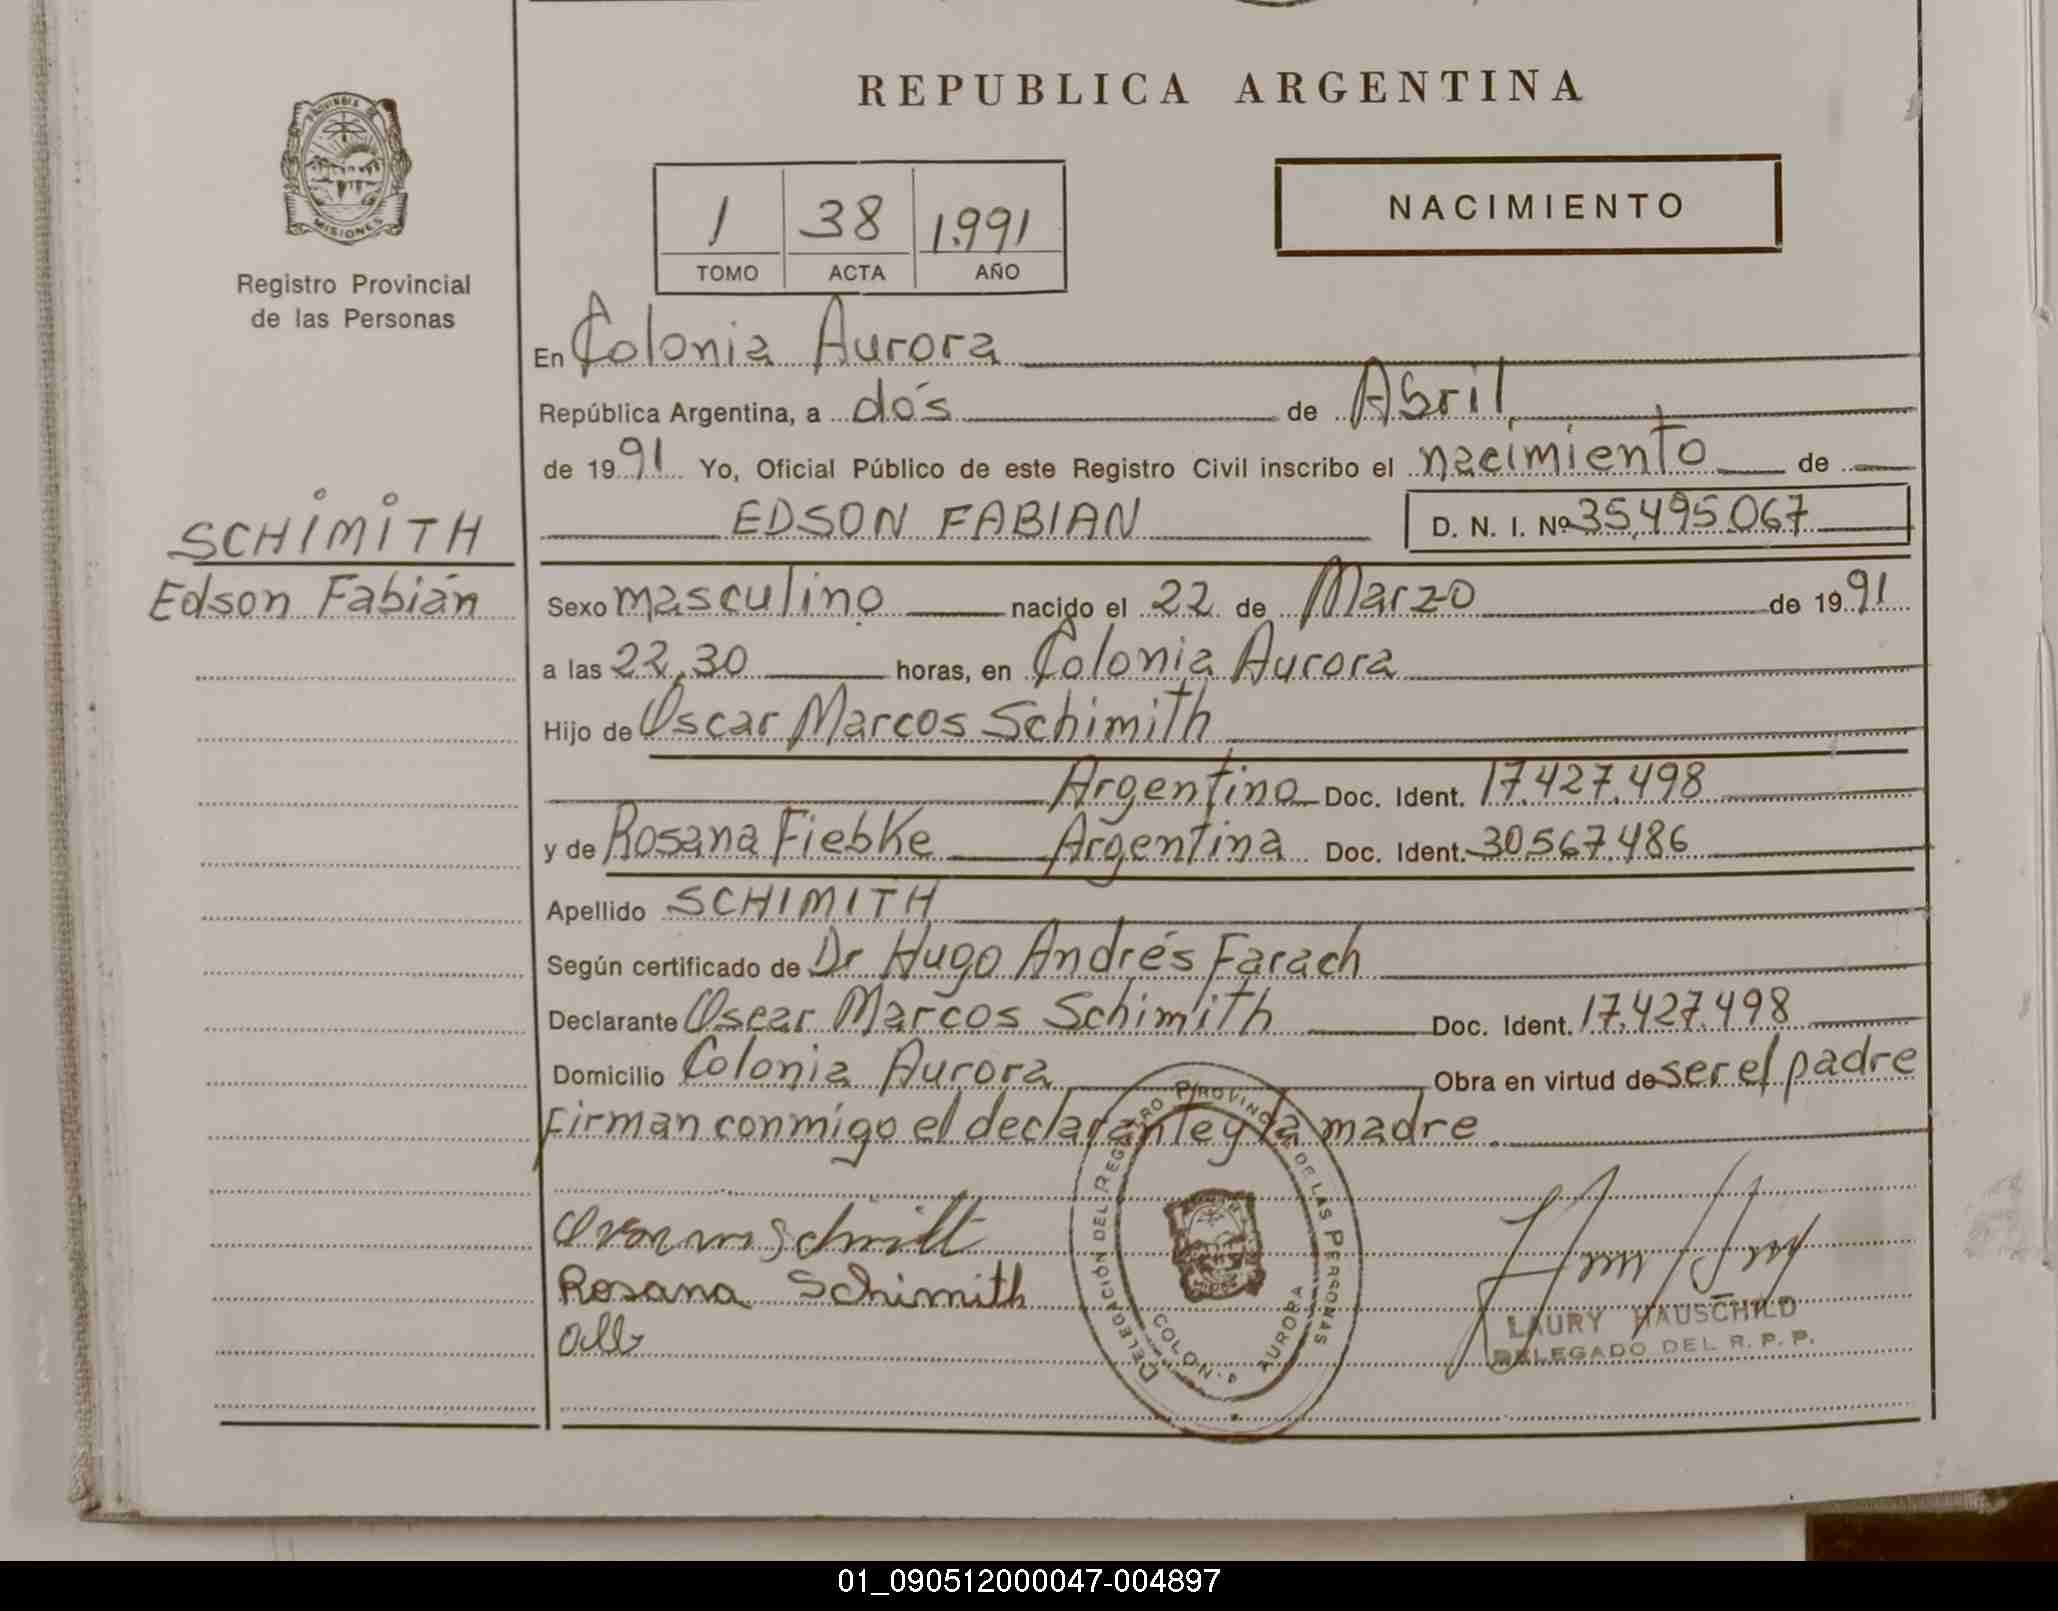 REPUBLICA ARGENTINA
PROVINCIA DE
MISIONES
Registro Provincial
de las Personas
NACIMIENTO
1 38 1.991
TOMO ACTA AÑO
En Colonia Aurora
República Argentina, a dós de Abril
de 1991 Yo, Oficial Público de este Registro Civil inscribo el nacimiento de
EDSON FABIAN D. N. I. Nº 35.495.067
SCHIMITH
Edson Fabián
Sexo masculino nacido el 22 de Marzo de 1991
a las 22,30 horas, en Colonia Aurora
Hijo de Oscar Marcos Schimith
Argentino Doc. Ident. 17.427.498
y de Rosana Fiebke Argentina Doc. Ident. 30.567.486
Apellido SCHIMITH
Según certificado de Dr Hugo Andrés Farach
Declarante Oscar Marcos Schimith Doc. Ident. 17.427.498
Domicilio Colonia Aurora Obra en virtud de ser el padre
Firman conmigo el declarante y la madre
Rosana Schimith
DELEGACIÓN DEL REGISTRO PROVINCIAL DE LAS PERSONAS
COLONIA AURORA
LAURY HAUSCHILD
DELEGADO DEL R. P. P.
01_090512000047-004897